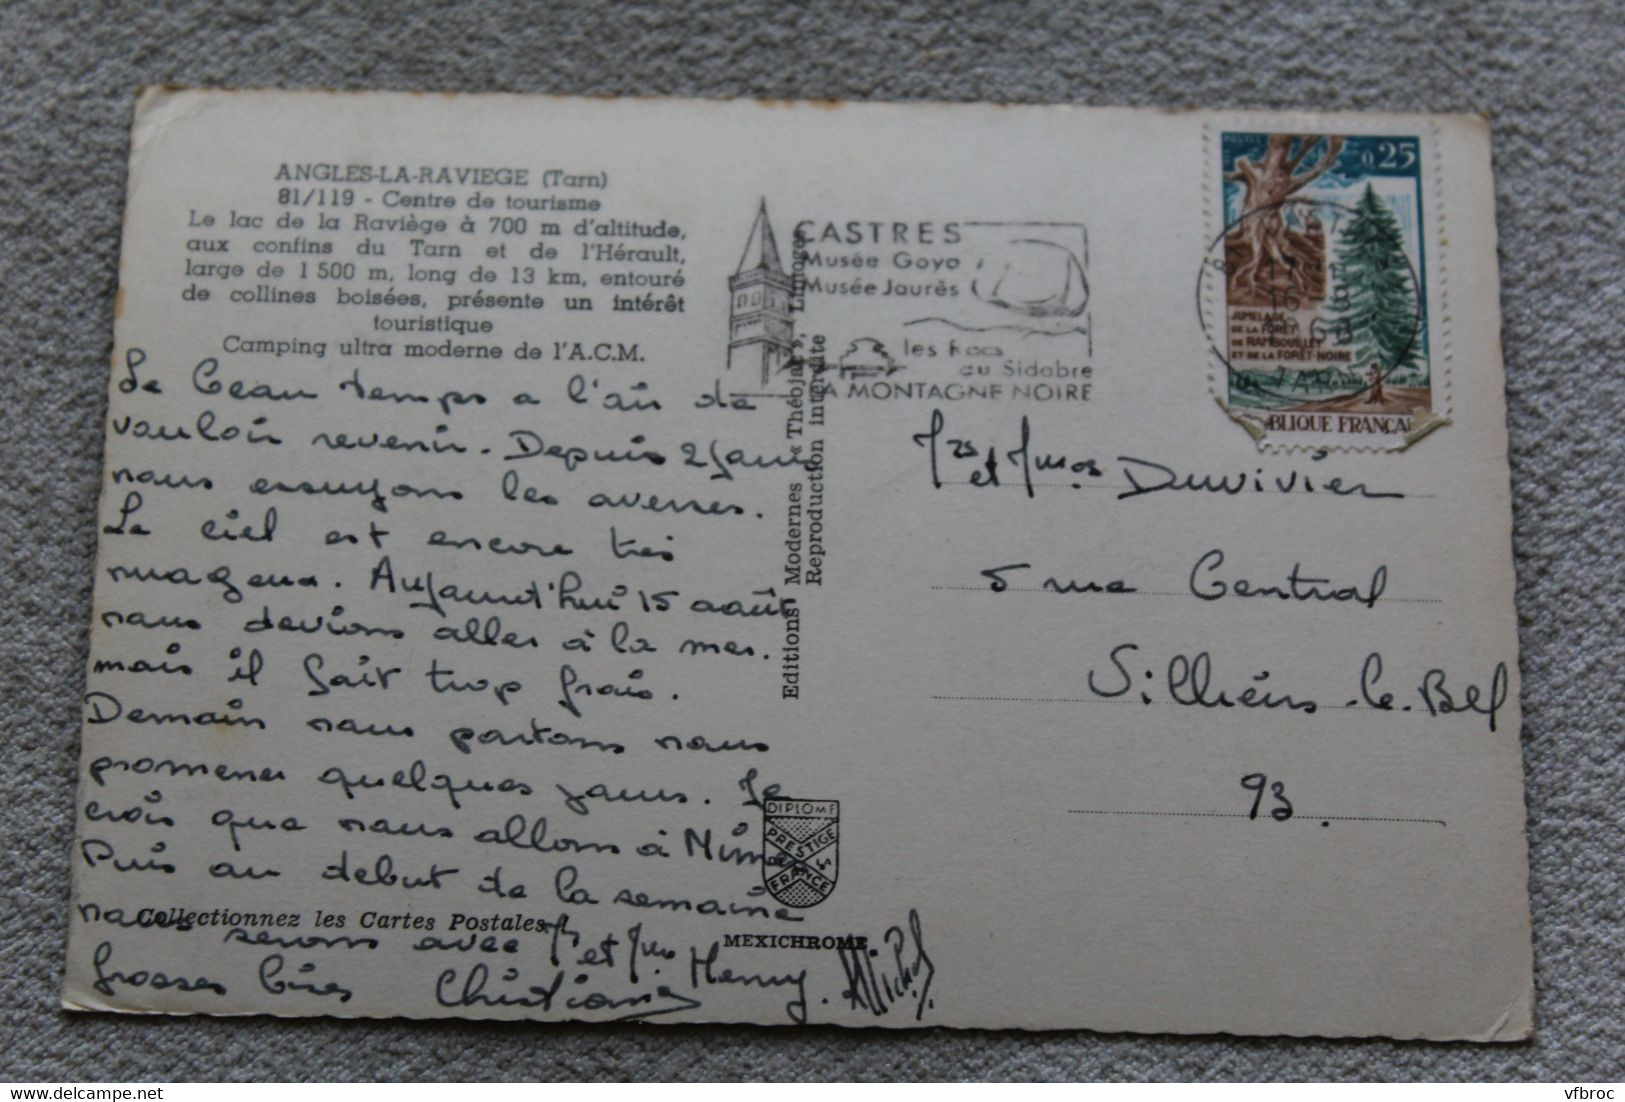 ANGLES-LA-RAVIEGE (Tarn)
81/119 - Centre de tourisme
Le lac de la Raviège à 700 m d'altitude,
aux confins du Tarn et de l'Hérault,
large de 1 500 m, long de 13 km, entouré
de collines boisées, présente un intérêt
touristique
Camping ultra moderne de l'A.C.M.
Le beau temps a l'air de
vouloir revenir. Depuis 2 jours
nous essuyons les averses.
Le ciel est encore très
nuageux. Aujourd'hui 15 août
nous devions aller à la mer.
mais il fait trop frais.
Demain nous partons nous
promener quelques jours. Je
crois que nous allons à Nimes
Puis au debut de la semaine
nous serons avec Mr et Mme Henry.
Grosses bises Christiane Michel
Collectionnez les Cartes Postales !
Editions Modernes « Théojac », Limoges
Reproduction interdite
DIPLOME
PRESTIGE
DE LA
FRANCE
MEXICHROME
CASTRES
Musée Goya
Musée Jaurès
les Rocs
du Sidobre
LA MONTAGNE NOIRE
0,25
JUMELAGE
DE LA FORÊT
DE RAMBOUILLET
ET DE LA FORÊT-NOIRE
BLIQUE FRANÇAI
16
TARN
Mrs et Mmes Duvivier
5 rue Central
Silliers-le-Bel
93.
vfbroc